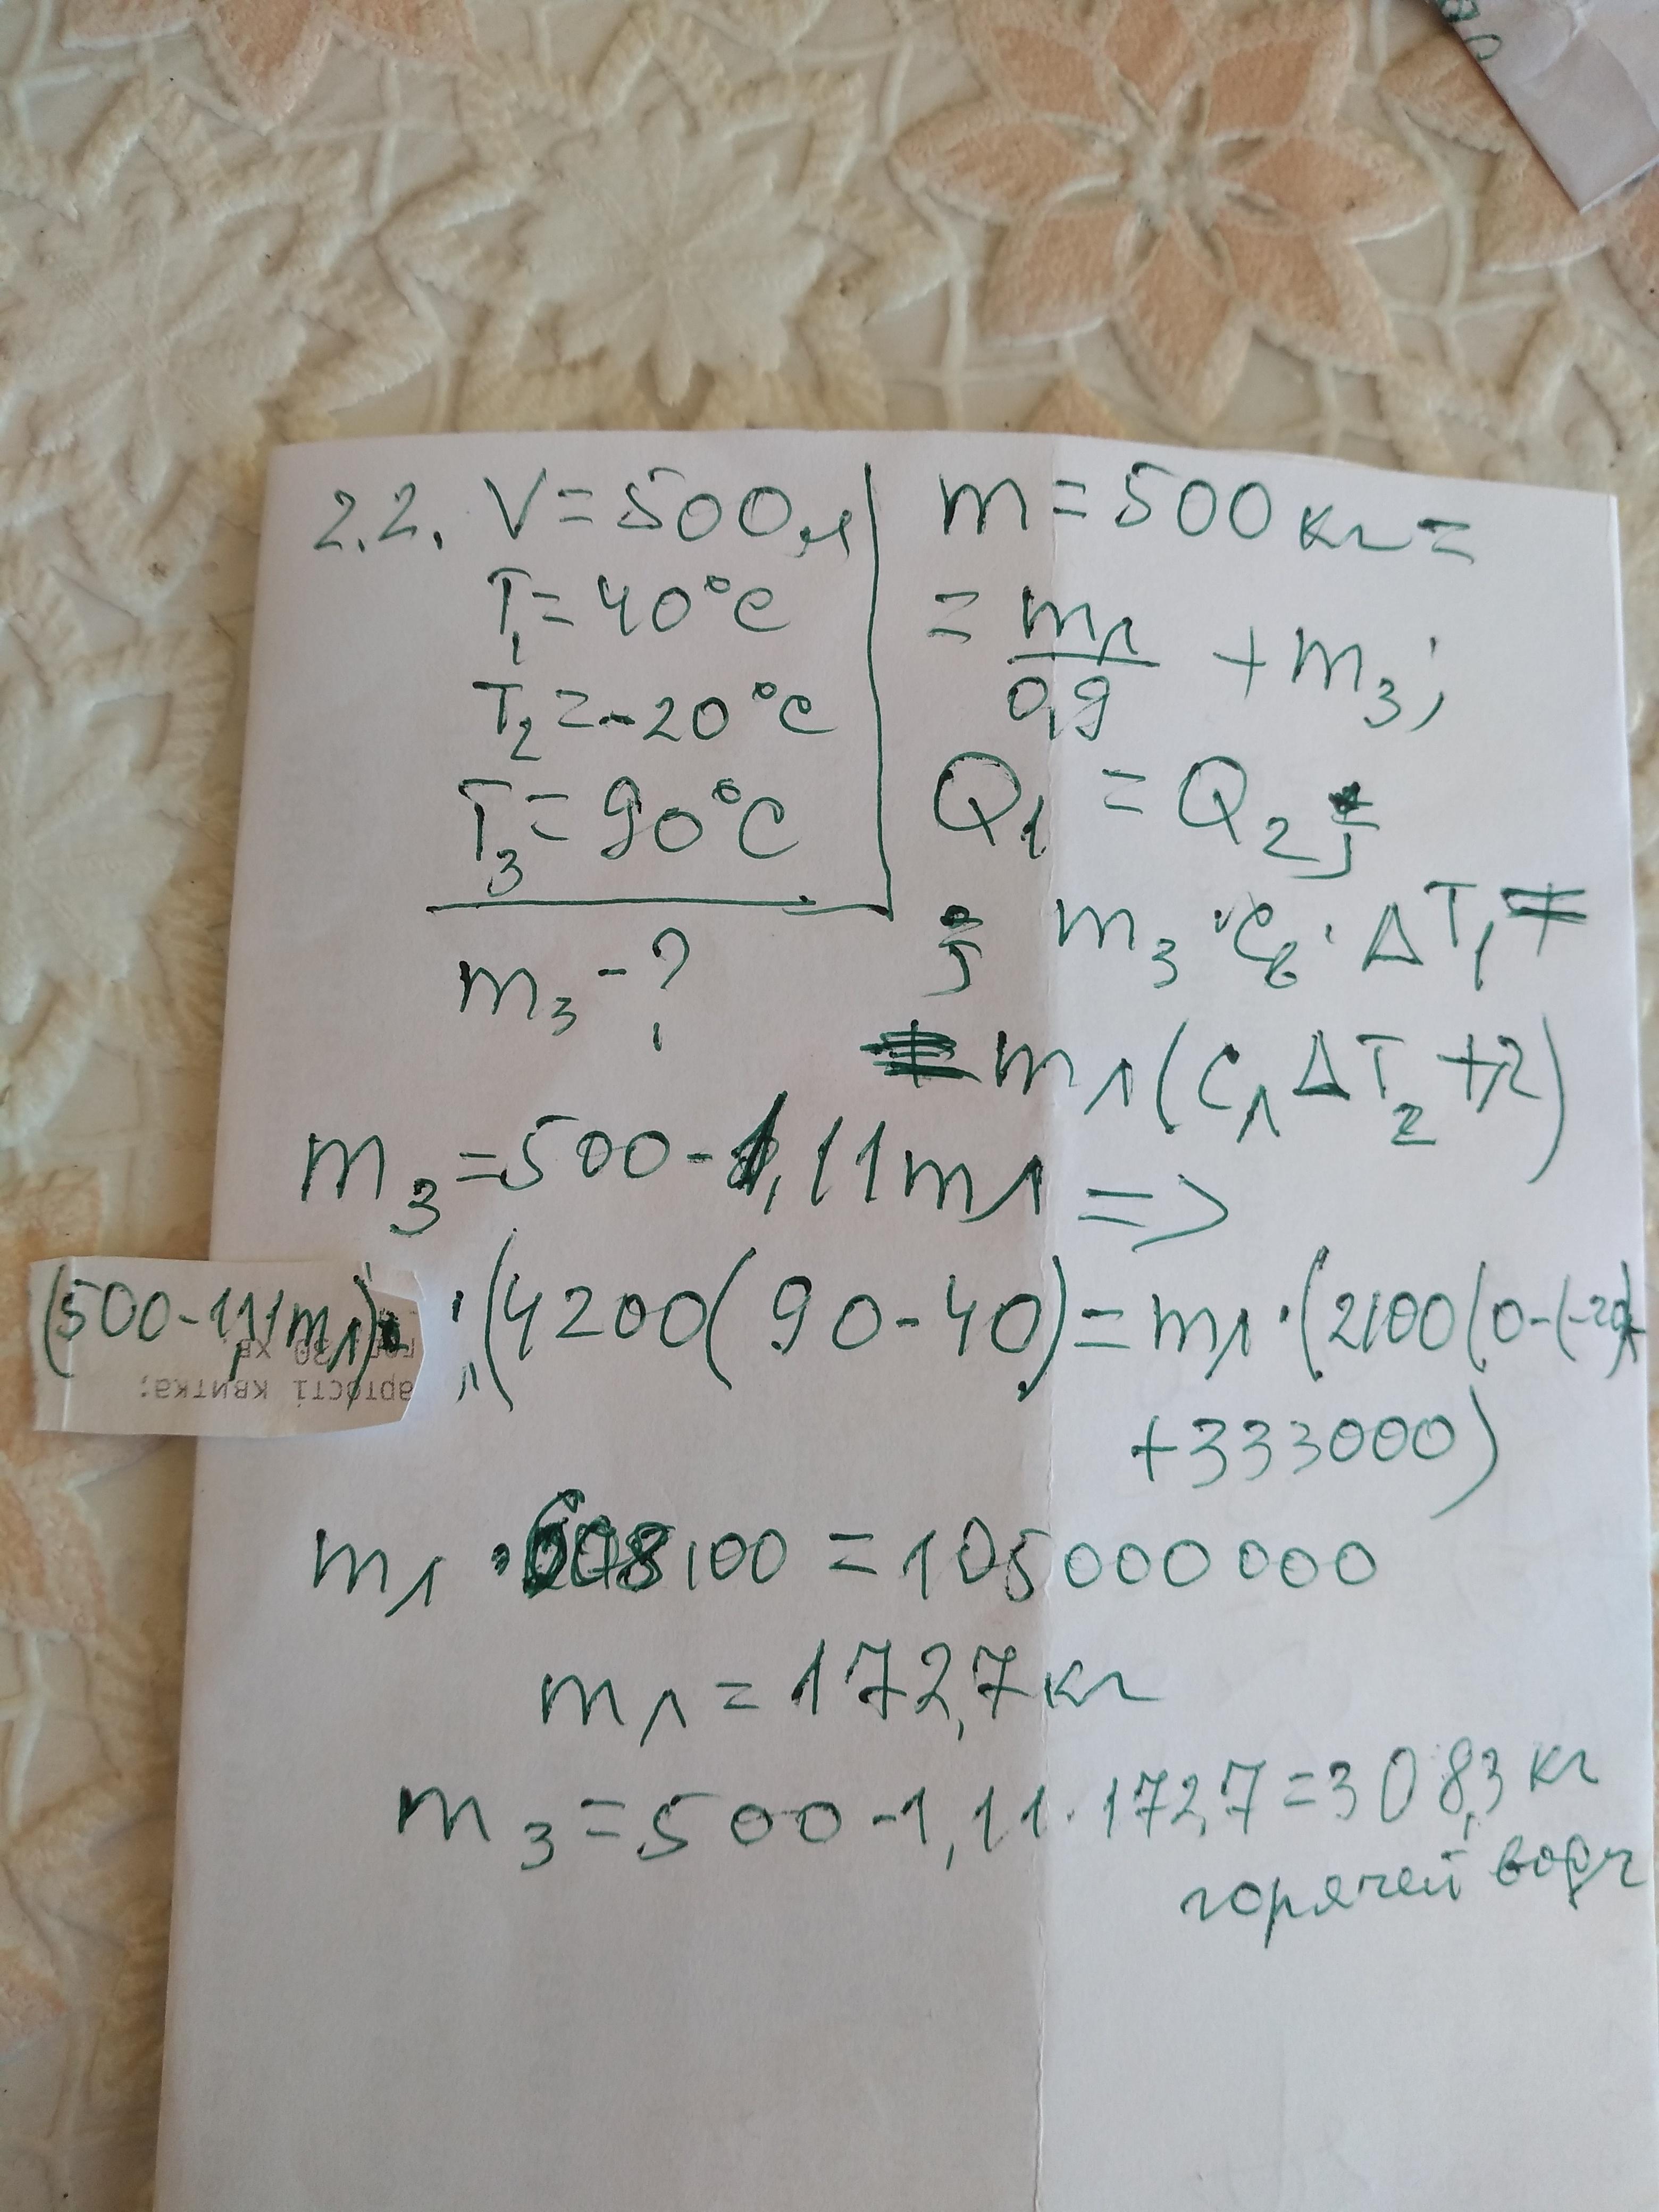 2.2. V = 500 л
T₁ = 40°C
T₂ = -20°C
T₃ = 90°C
m₃ - ?
m = 500 кг =
= mл/0,9 + m₃;
Q₁ = Q₂;
; m₃ · cв · ΔT₁ =
= mл (cл ΔT₂ + λ)
m₃ = 500 - 1,11 mл =>
(500 - 1,11 mл) · (4200 (90 - 40) = mл · (2100 (0 - (-20)) +
+ 333000)
артості квитка:
30 хв.
mл · 608100 = 105000000
mл = 172,7 кг
m₃ = 500 - 1,11 · 172,7 = 308,3 кг
горячей воды